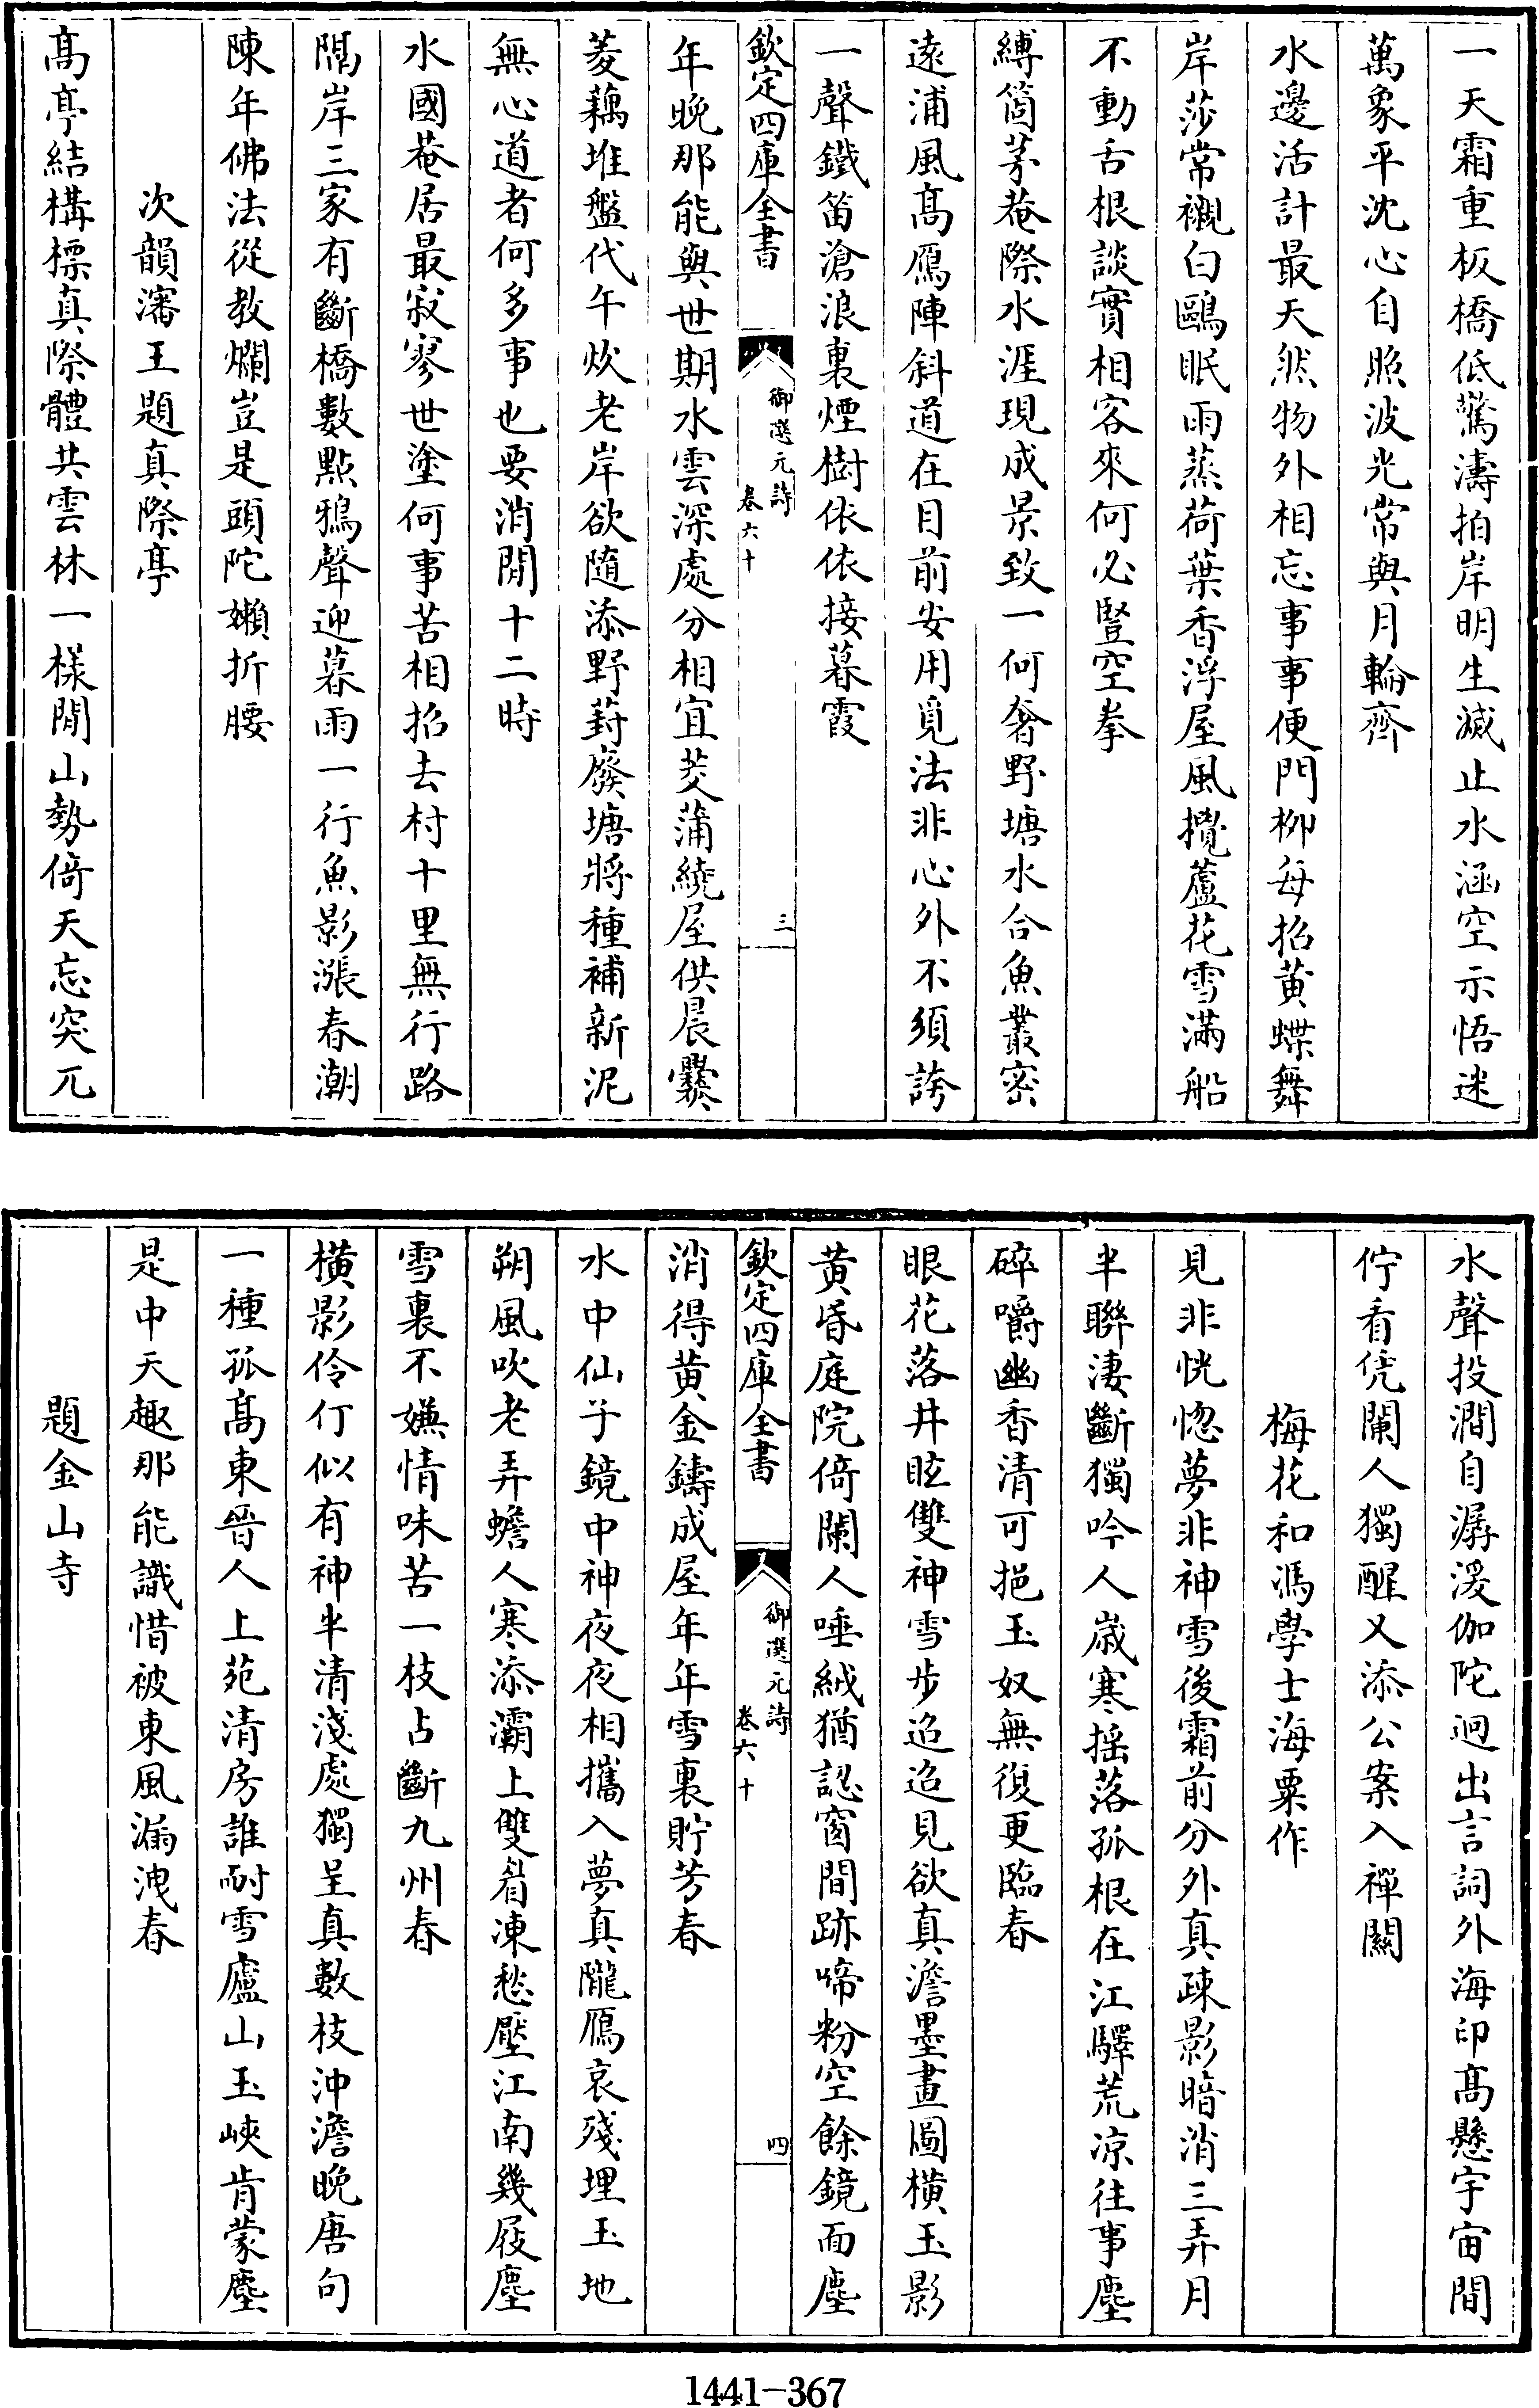 一天霜重板橋低驚濤拍岸明生滅止水涵空示悟迷
萬象平沈心自照波光常與月輪齊
水邊活計最天然物外相忘事事便門柳每招黄蝶舞
岸莎常襯白鷗眠雨蒸荷葉香浮屋風攪蘆花雪滿船
不動舌根談實相客來何必豎空拳
縛箇茅菴際水涯現成景致一何奢野塘水合魚叢密
遠浦風髙鴈陣斜道在目前安用覓法非心外不須誇
一聲鐵笛滄浪裏煙樹依依接暮霞
欽定四庫全書
御選元詩
卷六十
三
年晩那能與世期水雲深處分相宜茭蒲繞屋供晨爨
菱藕堆盤代午炊老岸欲隨添野葑廢塘將種補新泥
無心道者何多事也要消閒十二時
水國菴居最寂寥世塗何事苦相招去村十里無行路
隔岸三家有斷橋數點鴉聲迎暮雨一行魚影漲春潮
陳年佛法從教爛豈是頭陀嬾折腰
次韻瀋王題真際亭
髙亭結構標真際體共雲林一樣閒山勢倚天忘突兀
水聲投澗自潺湲伽陀迥出言詞外海印髙懸宇宙間
佇看凭闌人獨醒又添公案入禪關
梅花和馮學士海粟作
見非恍惚夢非神雪後霜前分外真疎影暗消三弄月
半聯淒斷獨吟人嵗寒揺落孤根在江驛荒凉往事塵
碎嚼幽香清可挹玉奴無復更臨春
眼花落井眩雙神雪步迢迢見欲真澹墨畫圖橫玉影
黄昏庭院倚闌人唾絨猶認窗間跡啼粉空餘鏡面塵
欽定四庫全書
御選元詩
卷六十
四
消得黄金鑄成屋年年雪裏貯芳春
水中仙子鏡中神夜夜相攜入夢真隴鴈哀殘埋玉地
朔風吹老弄蟾人寒添灞上雙眉凍愁壓江南幾屐塵
雪裏不嫌情味苦一枝占斷九州春
橫影伶仃似有神半清淺處獨呈真數枝沖澹晩唐句
一種孤髙東晉人上苑清房誰耐雪廬山玉峽肯蒙塵
是中天趣那能識惜被東風漏洩春
題金山寺
1441-367